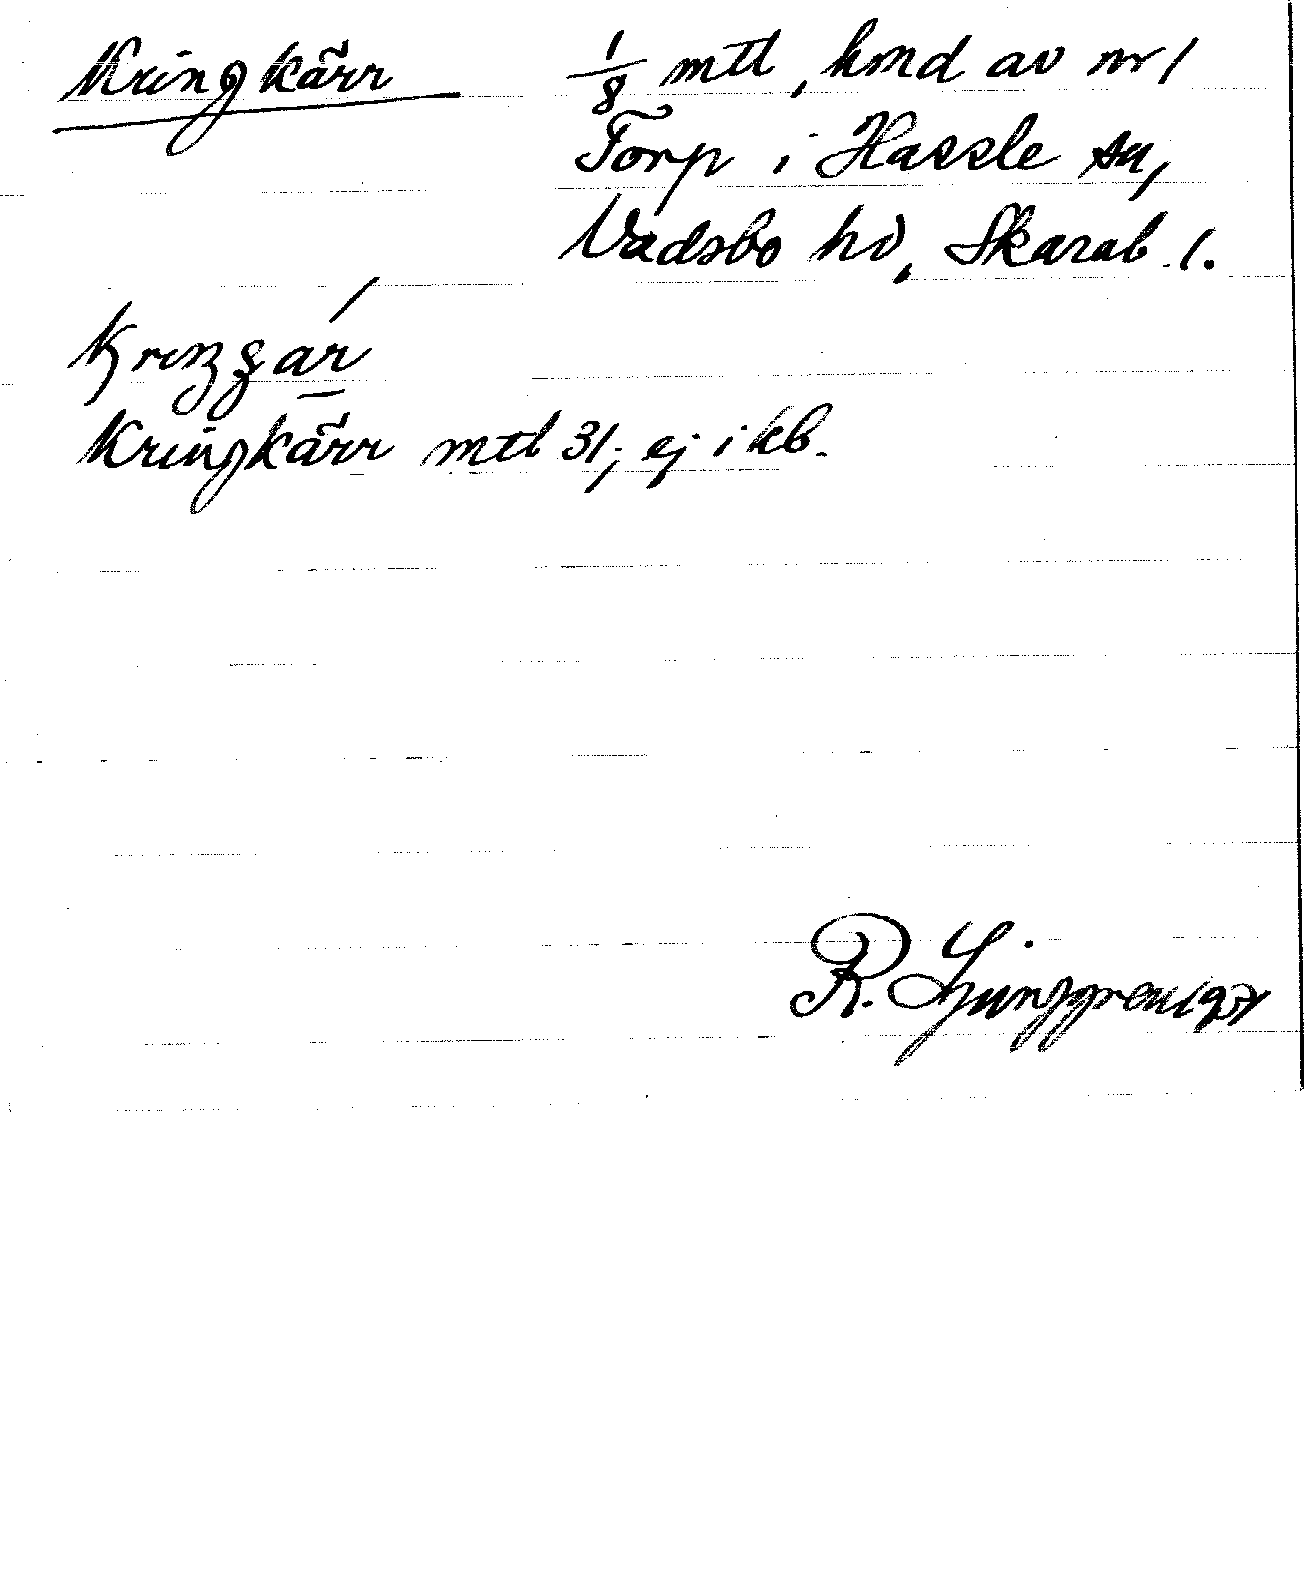 Kringkärr 1/8 mtl, hmd av nr 1
Torp i Hassle sn,
Vadsbo hd, Skarab. l.
Kringkärr mtl 31; ej i kb.
R. Ljunggren